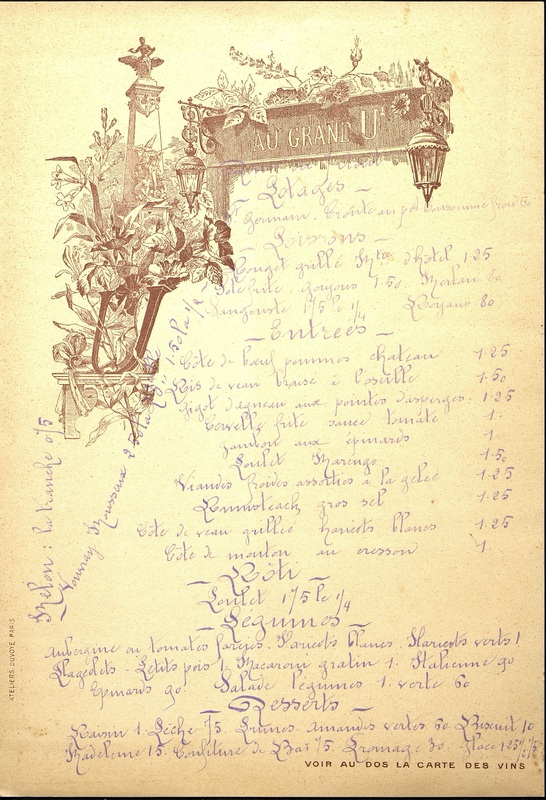 AU GRAND U
Potages
St Germain. Croûte au pot. Consommé froid 60
Poissons
Rouget grillé Mtre d'hôtel 1.25
Sole frite. goujons 1.50. Merlan 80
Langouste 1 75 le 1/4 Royans 80
Entrées
Côte de bœuf pommes chateau 1.25
Ris de veau braisé à l'oseille 1.50
Gigot d'agneau aux pointes d'asperges. 1.25
Cervelle frite sauce tomate 1.
Jambon aux épinards 1
Poulet Marengo 1.50
Viandes froides assorties à la gelée 1.25
Rumsteack gros sel 1.25
Côte de veau grillée haricots blancs 1.25
Côte de mouton au cresson 1.
Rôti
Poulet 1 75 le 1/4
Légumes
Aubergine ou tomates farcies. Haricots blancs. Haricots verts 1
Flageolets. Petits pois 1. Macaroni gratin 1. Italienne 90
Epinards 90. Salade légumes 1. verte 60
Desserts
Raisin 1. Pêche 75. Prunes. amandes vertes 60. Biscuit 10
Madeleine 15. Confiture de Bar 75. Fromage 30. Glace 1 25
Melon : la tranche 0 75
Vouvray Mousseux
VOIR AU DOS LA CARTE DES VINS
ATELIERS DUVOYE PARIS